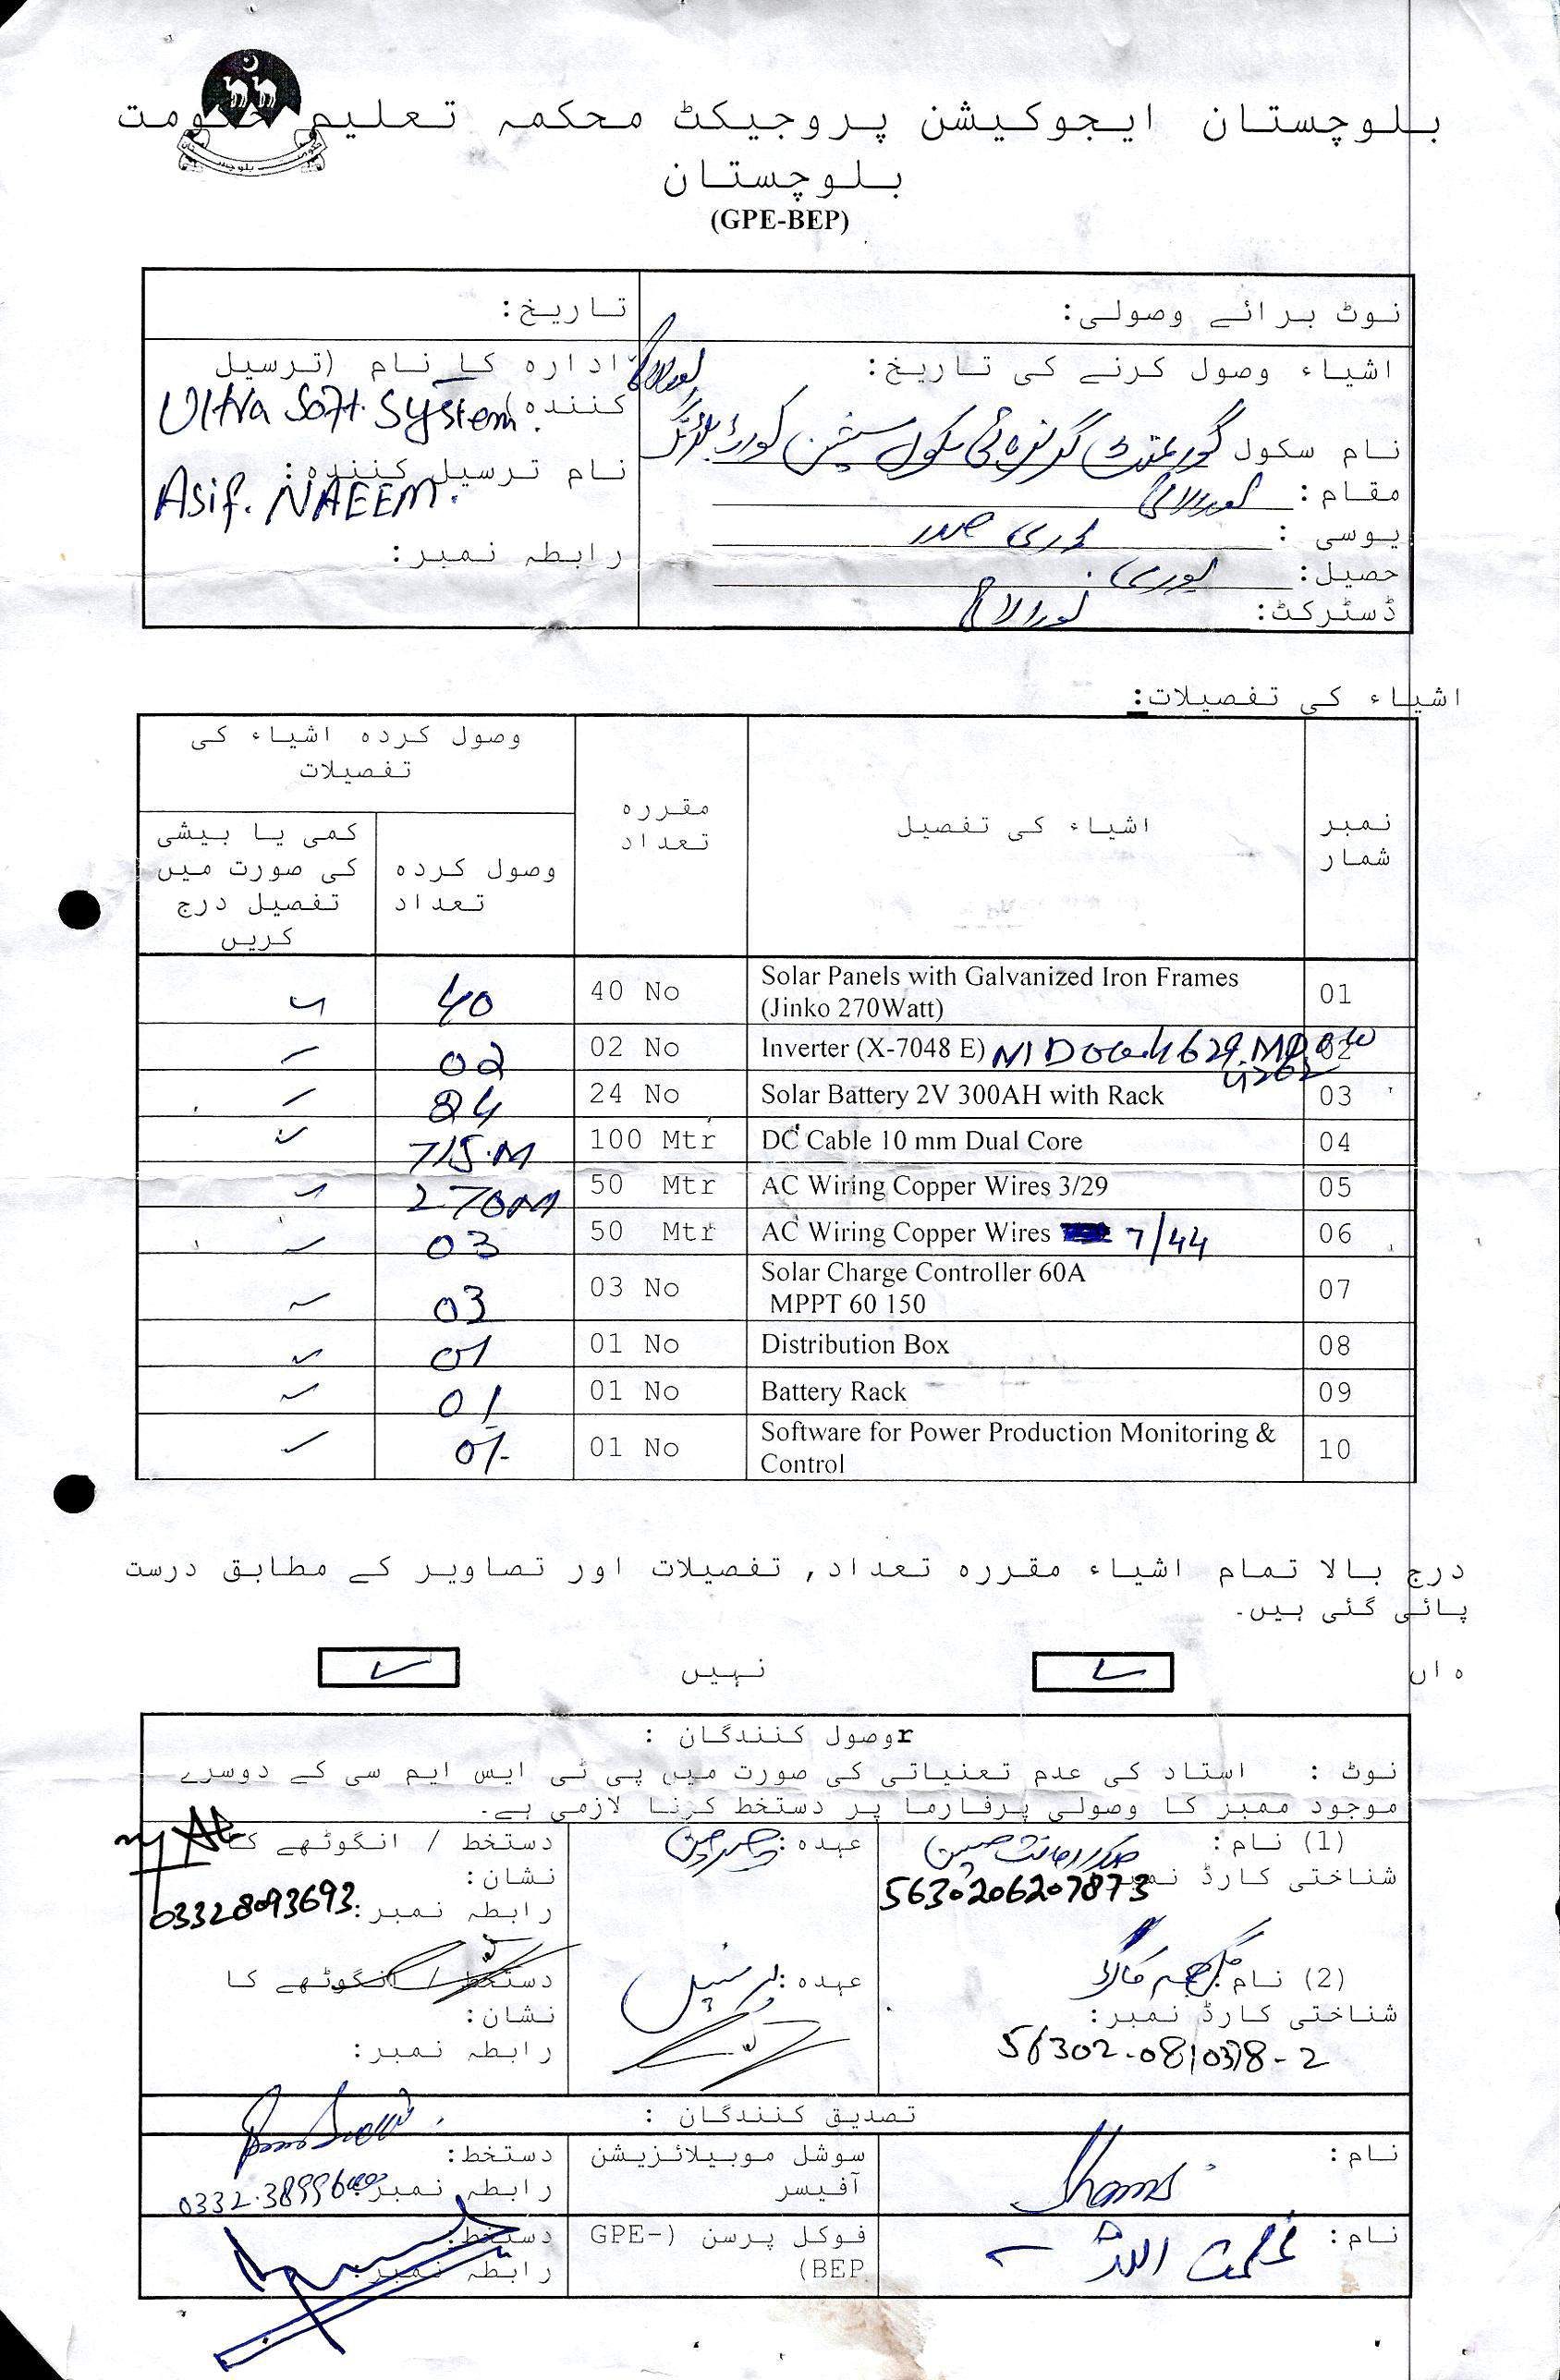 بلوچستان ایجوکیشن پروجیکٹ محکمہ تعلیم حکومت
بلوچستان
(GPE-BEP)
نوٹ برائے وصولی:
تاریخ:
اشیاء وصول کرنے کی تاریخ:
نام سکول گورنمنٹ گرلز ہائی سکول سیشن کورٹ
لورالائی
مقام: لورالائی
یوسی :
حصیل:
ڈسٹرکٹ: لورالائی
ادارہ کا نام (ترسیل
کنندہ) Ultra Soft System.
نام ترسیل کنندہ:
Asif. NAEEM.
رابطہ نمبر:
اشیاء کی تفصیلات:
نمبر شمار
اشیاء کی تفصیل
مقررہ تعداد
وصول کردہ اشیاء کی تفصیلات
وصول کردہ تعداد
کمی یا بیشی کی صورت میں تفصیل درج کریں
01 Solar Panels with Galvanized Iron Frames (Jinko 270Watt) 40 No 40
02 Inverter (X-7048 E) 02 No 02
03 Solar Battery 2V 300AH with Rack 24 No 24
04 DC Cable 10 mm Dual Core 100 Mtr 715.M
05 AC Wiring Copper Wires 3/29 50 Mtr 270M
06 AC Wiring Copper Wires 7/44 50 Mtr 03
07 Solar Charge Controller 60A MPPT 60 150 03 No 03
08 Distribution Box 01 No 01
09 Battery Rack 01 No 01
10 Software for Power Production Monitoring & Control 01 No 01
درج بالا تمام اشیاء مقررہ تعداد, تفصیلات اور تصاویر کے مطابق درست
پائی گئی ہیں۔
ہاں
نہیں
rوصول کنندگان :
نوٹ : استاد کی عدم تعنیاتی کی صورت میں پی ٹی ایس ایم سی کے دوسرے
موجود ممبز کا وصولی پرفارما پر دستخط کرنا لازمی ہے۔
(1) نام:
شناختی کارڈ نمبر
5630206207873
عہدہ: چیرمین
دستخط / انگوٹھے کا
نشان:
رابطہ نمبر: 03328093693
(2) نام:
شناختی کارڈ نمبر:
56302-0810378-2
عہدہ: پرنسپل
دستخط / انگوٹھے کا
نشان:
رابطہ نمبر:
تصدیق کنندگان :
نام: Shams
سوشل موبیلائزیشن
آفیسر
دستخط:
رابطہ نمبر:
نام: عظمت اللہ
فوکل پرسن (GPE-
BEP)
دستخط:
رابطہ نمبر: